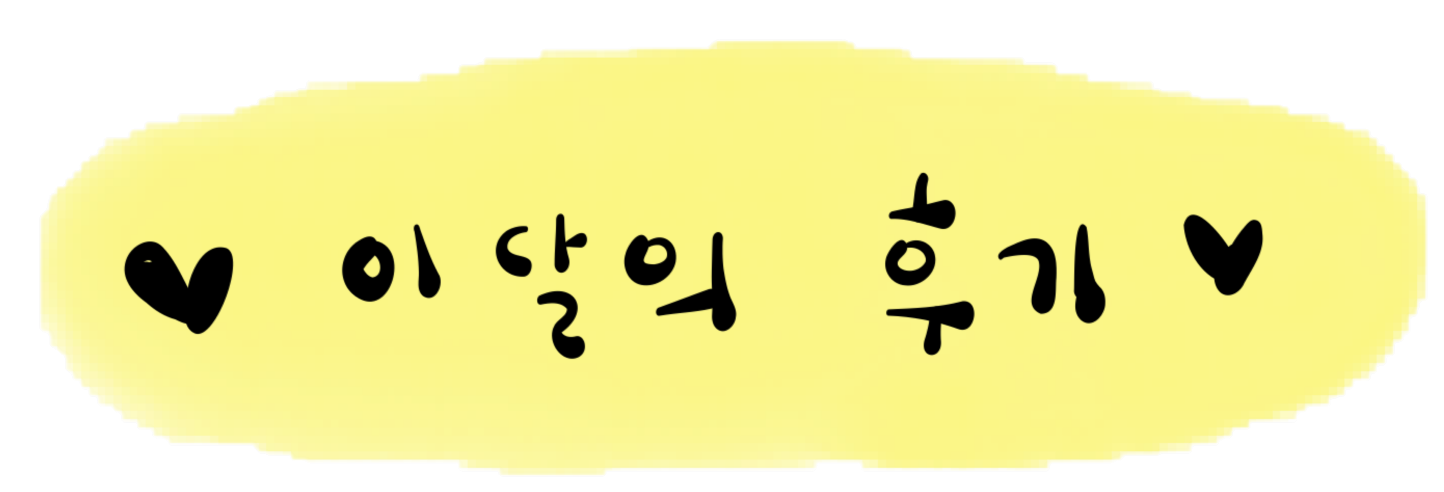 ♥ 이달의 후기 ♥